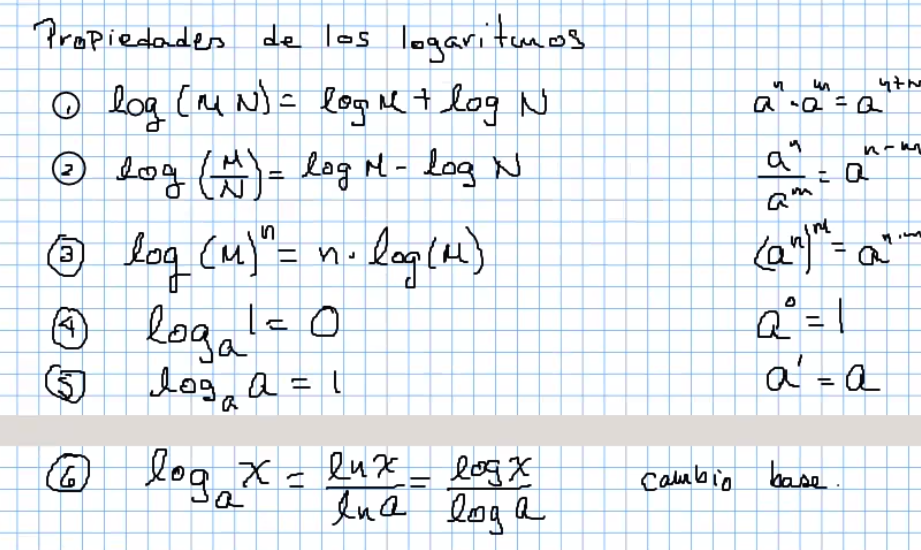 Propiedades de los logaritmos
① log (M N) = log M + log N aⁿ · aᵐ = aⁿ⁺ᵐ
② log (M/N) = log M - log N aⁿ/aᵐ = aⁿ⁻ᵐ
③ log (M)ⁿ = n · log(M) (aⁿ)ᵐ = aⁿ·ᵐ
④ logₐ 1 = 0 a⁰ = 1
⑤ logₐ a = 1 a¹ = a
⑥ logₐ x = ln x/ln a = log x/log a cambio base.